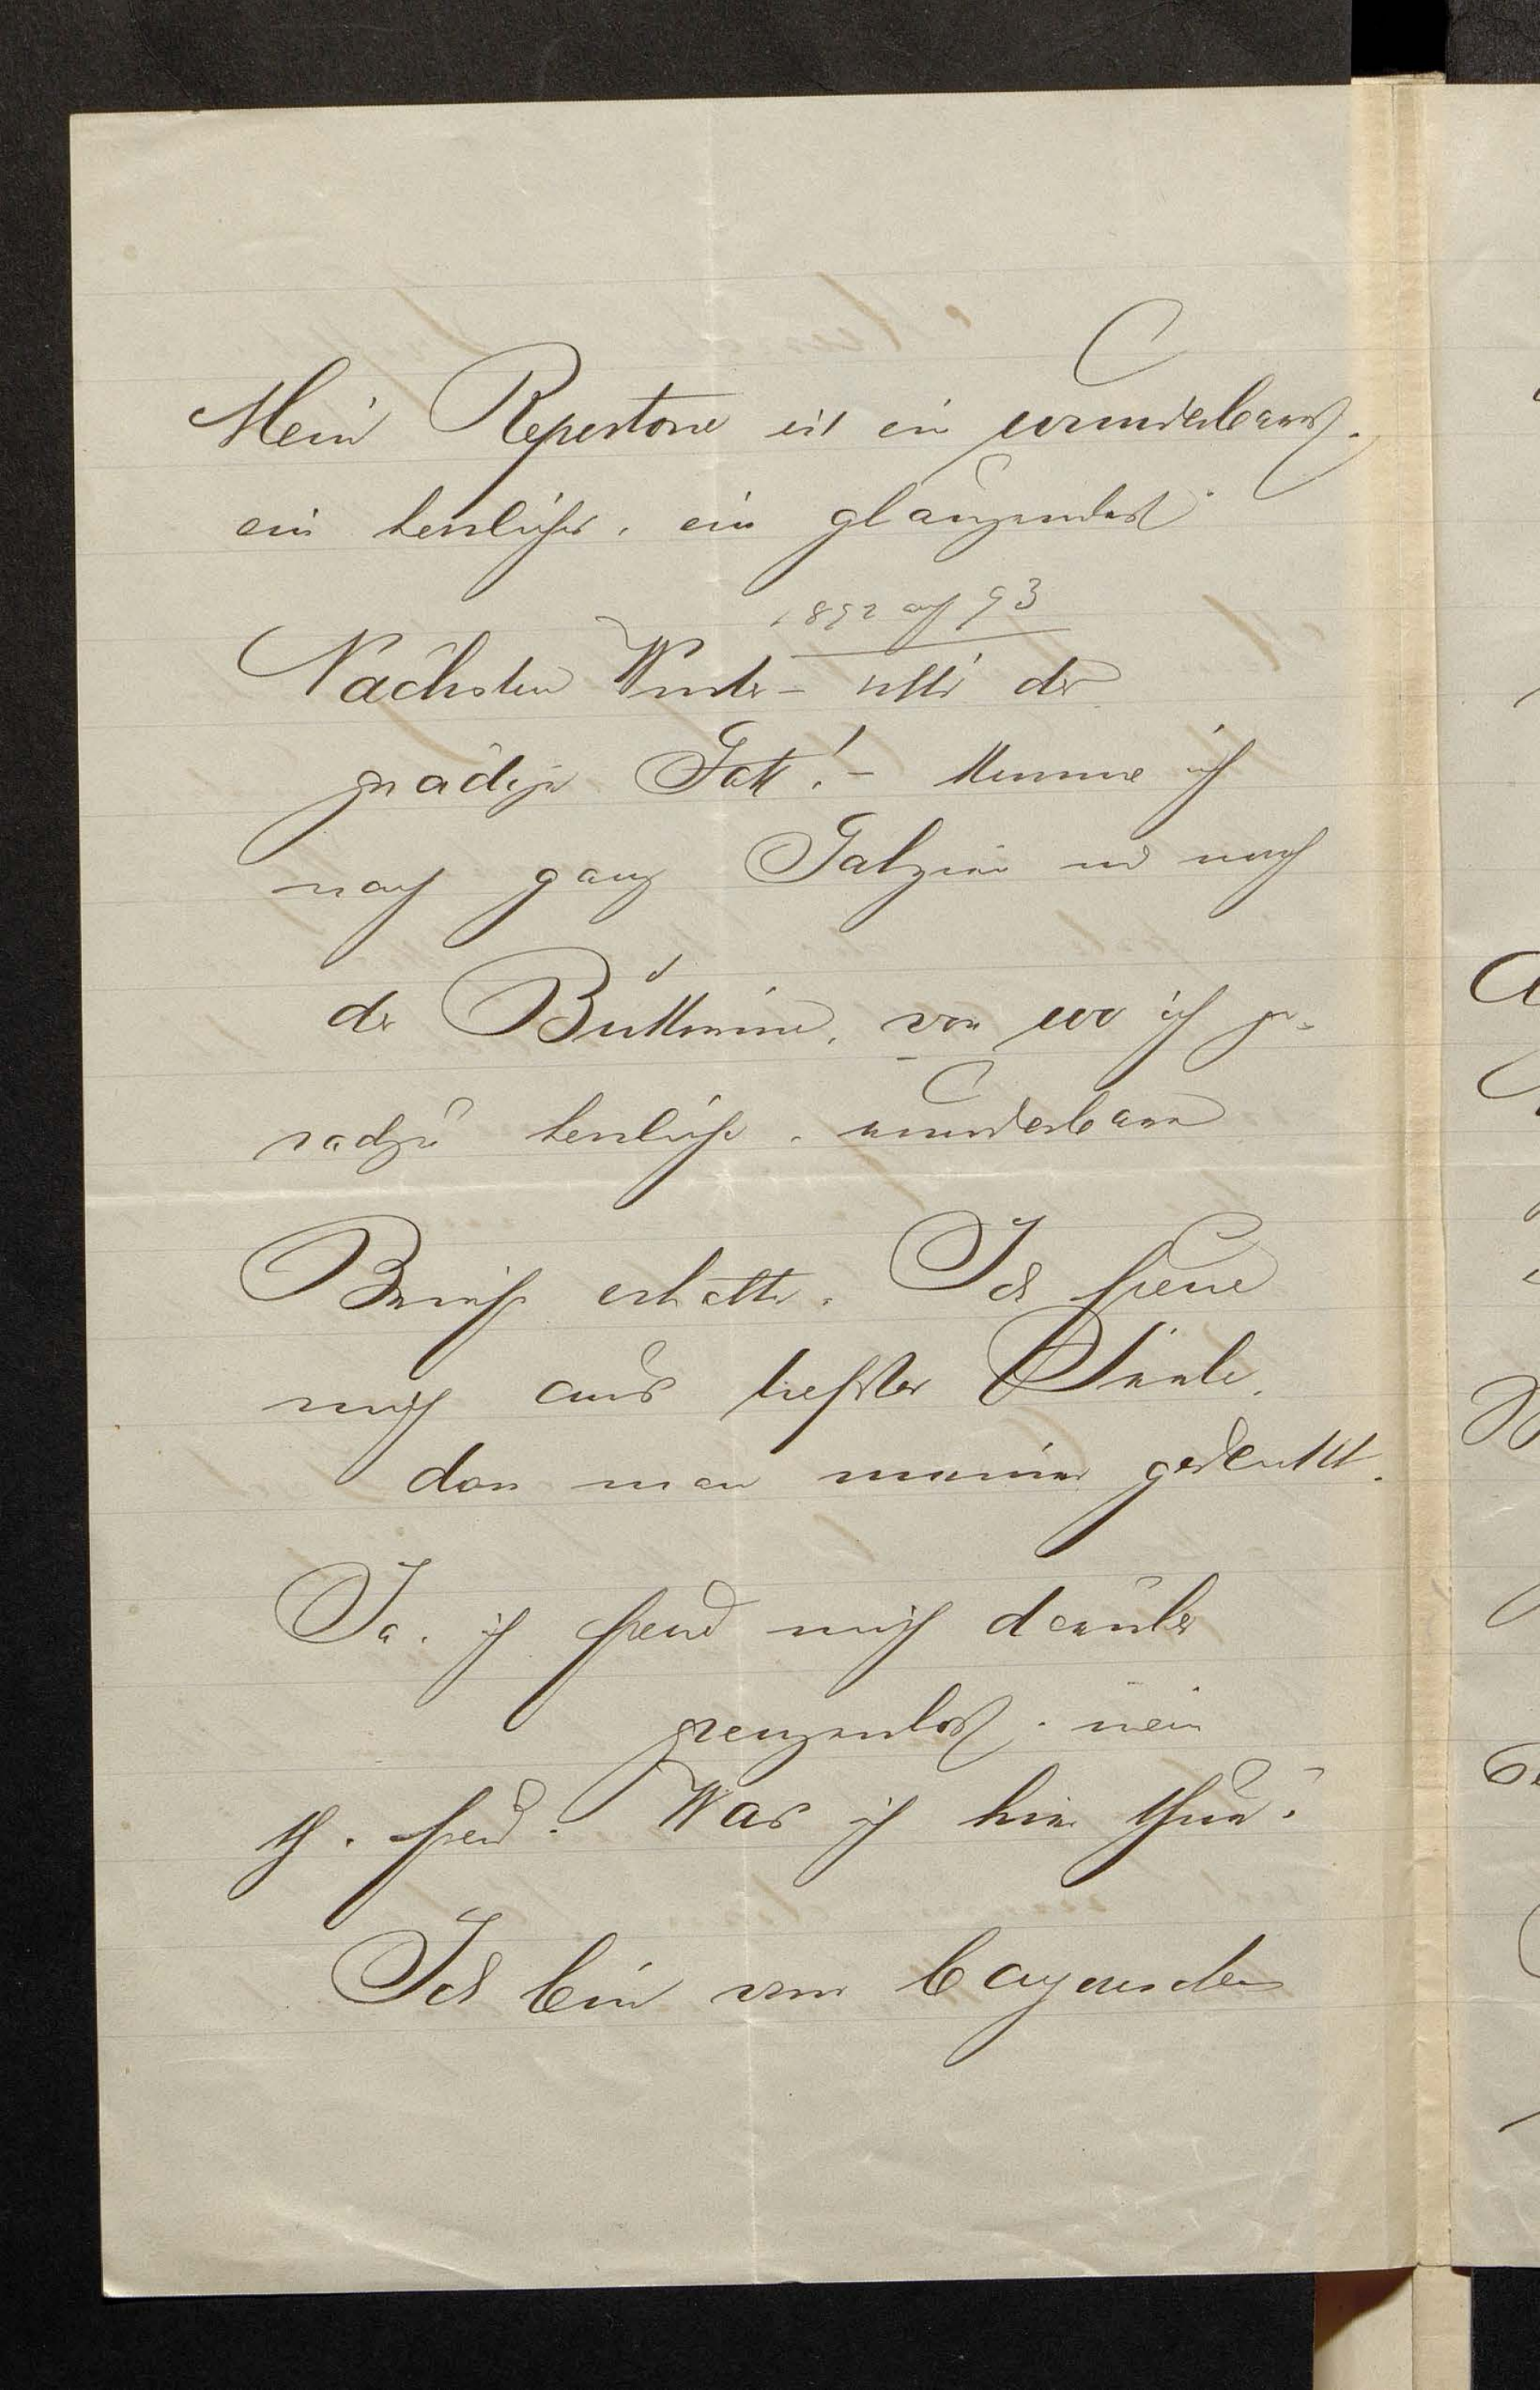 Mein Repertoire ist ein wunderbares,
ein herrliches, ein glänzendes.
1892 auf 93
Nächsten Winter – uttr der
gnädige Gott! – komme ich
nach ganz Galizien und nach
der Bukowina, von wo ich ge-
radezu herrliche, wunderbare
Briefe erhalte. Ich freue
mich aus tiefster Seele,
dass man meiner gedenkt.
Ja, ich freue mich darüber
grenzenlos, mein
th. Freund. Was ich hier thue?
Ich bin von